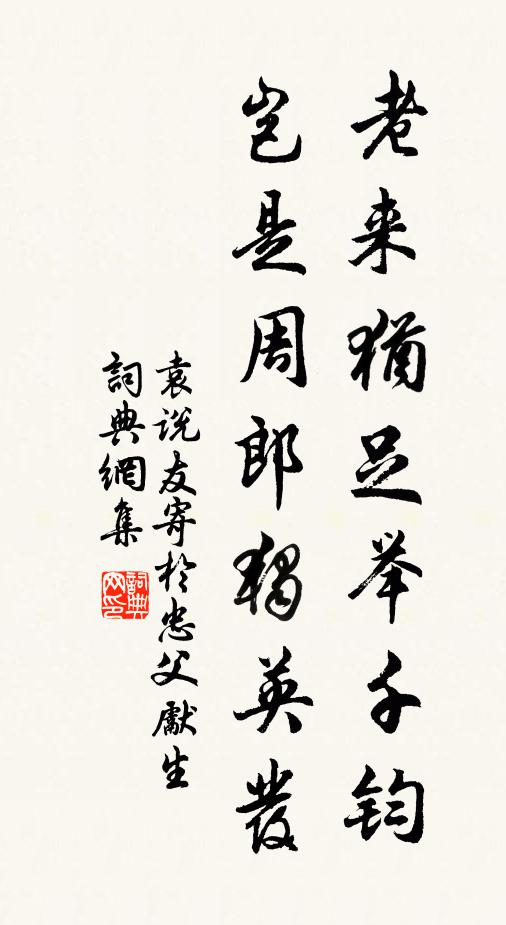 老来猶足举千钧
岂是周郎独英發
袁说友寄於忠父獻生
詞典網集
詞典网印